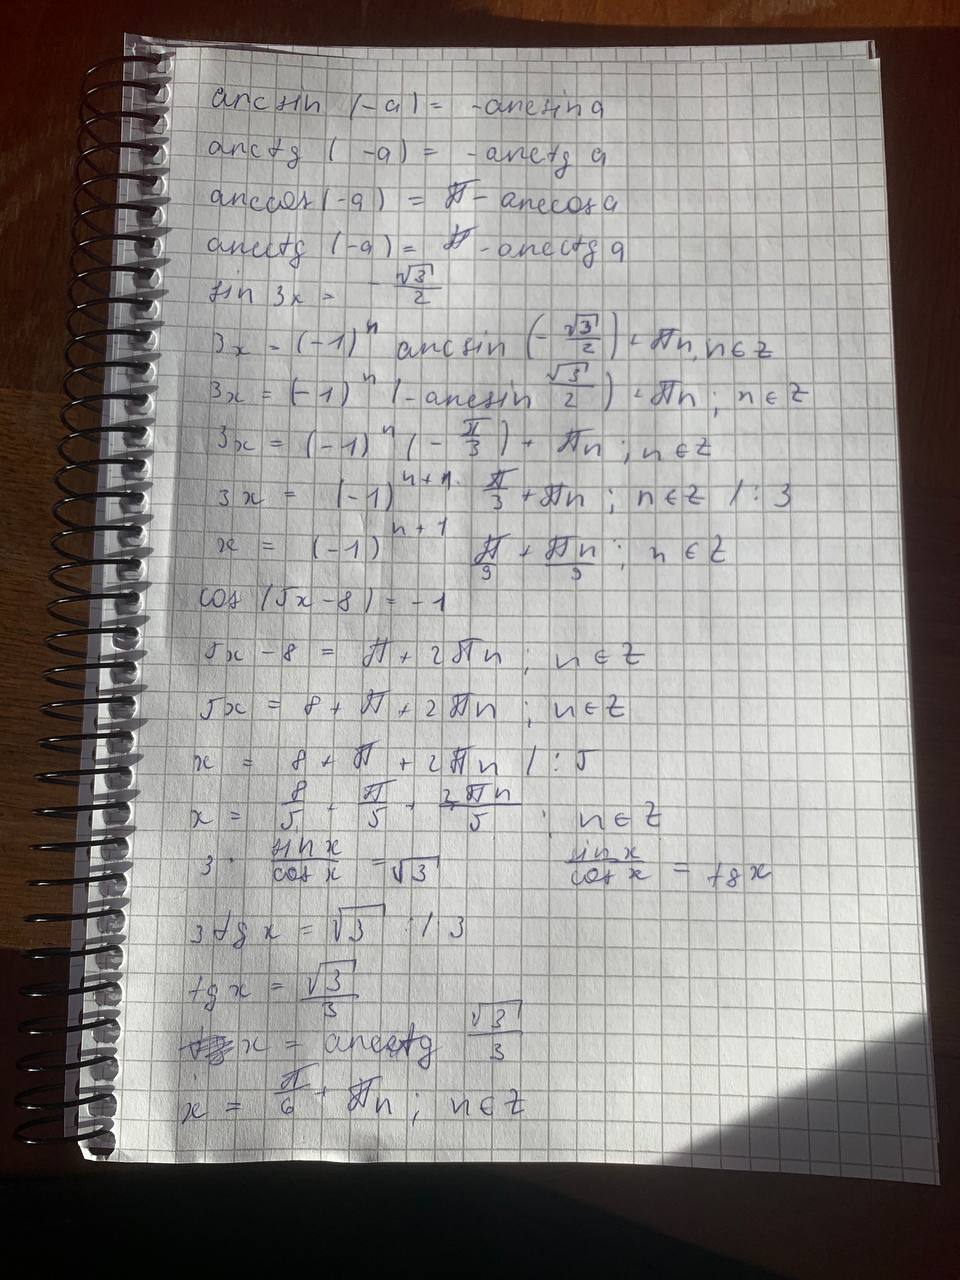 arcsin (-a) = -arcsin a
arctg (-a) = -arctg a
arccos (-a) = π - arccos a
arcctg (-a) = π - arcctg a
sin 3x = -√3/2
3x = (-1)^n arcsin (-√3/2) + πn, n∈Z
3x = (-1)^n (-arcsin √3/2) + πn; n∈Z
3x = (-1)^n (-π/3) + πn; n∈Z
3x = (-1)^(n+1) · π/3 + πn; n∈Z /:3
x = (-1)^(n+1) π/9 + πn/9; n∈Z
cos (5x-8) = -1
5x - 8 = π + 2πn; n∈Z
5x = 8 + π + 2πn; n∈Z
x = 8 + π + 2πn /:5
x = 8/5 + π/5 + 2πn/5; n∈Z
3 · sin x/cos x = √3 sin x/cos x = tg x
3 tg x = √3 :/3
tg x = √3/3
x = arcctg √3/3
x = π/6 + πn; n∈Z